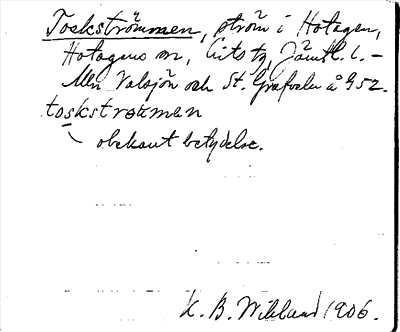 Toskströmmen, ström i Hotagen,
Hotagens sn, Lits tg, Jämtl. l. –
Mlln Valsjön och St. Grafveln å G52.
toskstrømen
obekant betydelse.
K. B. Wiklund 1906.